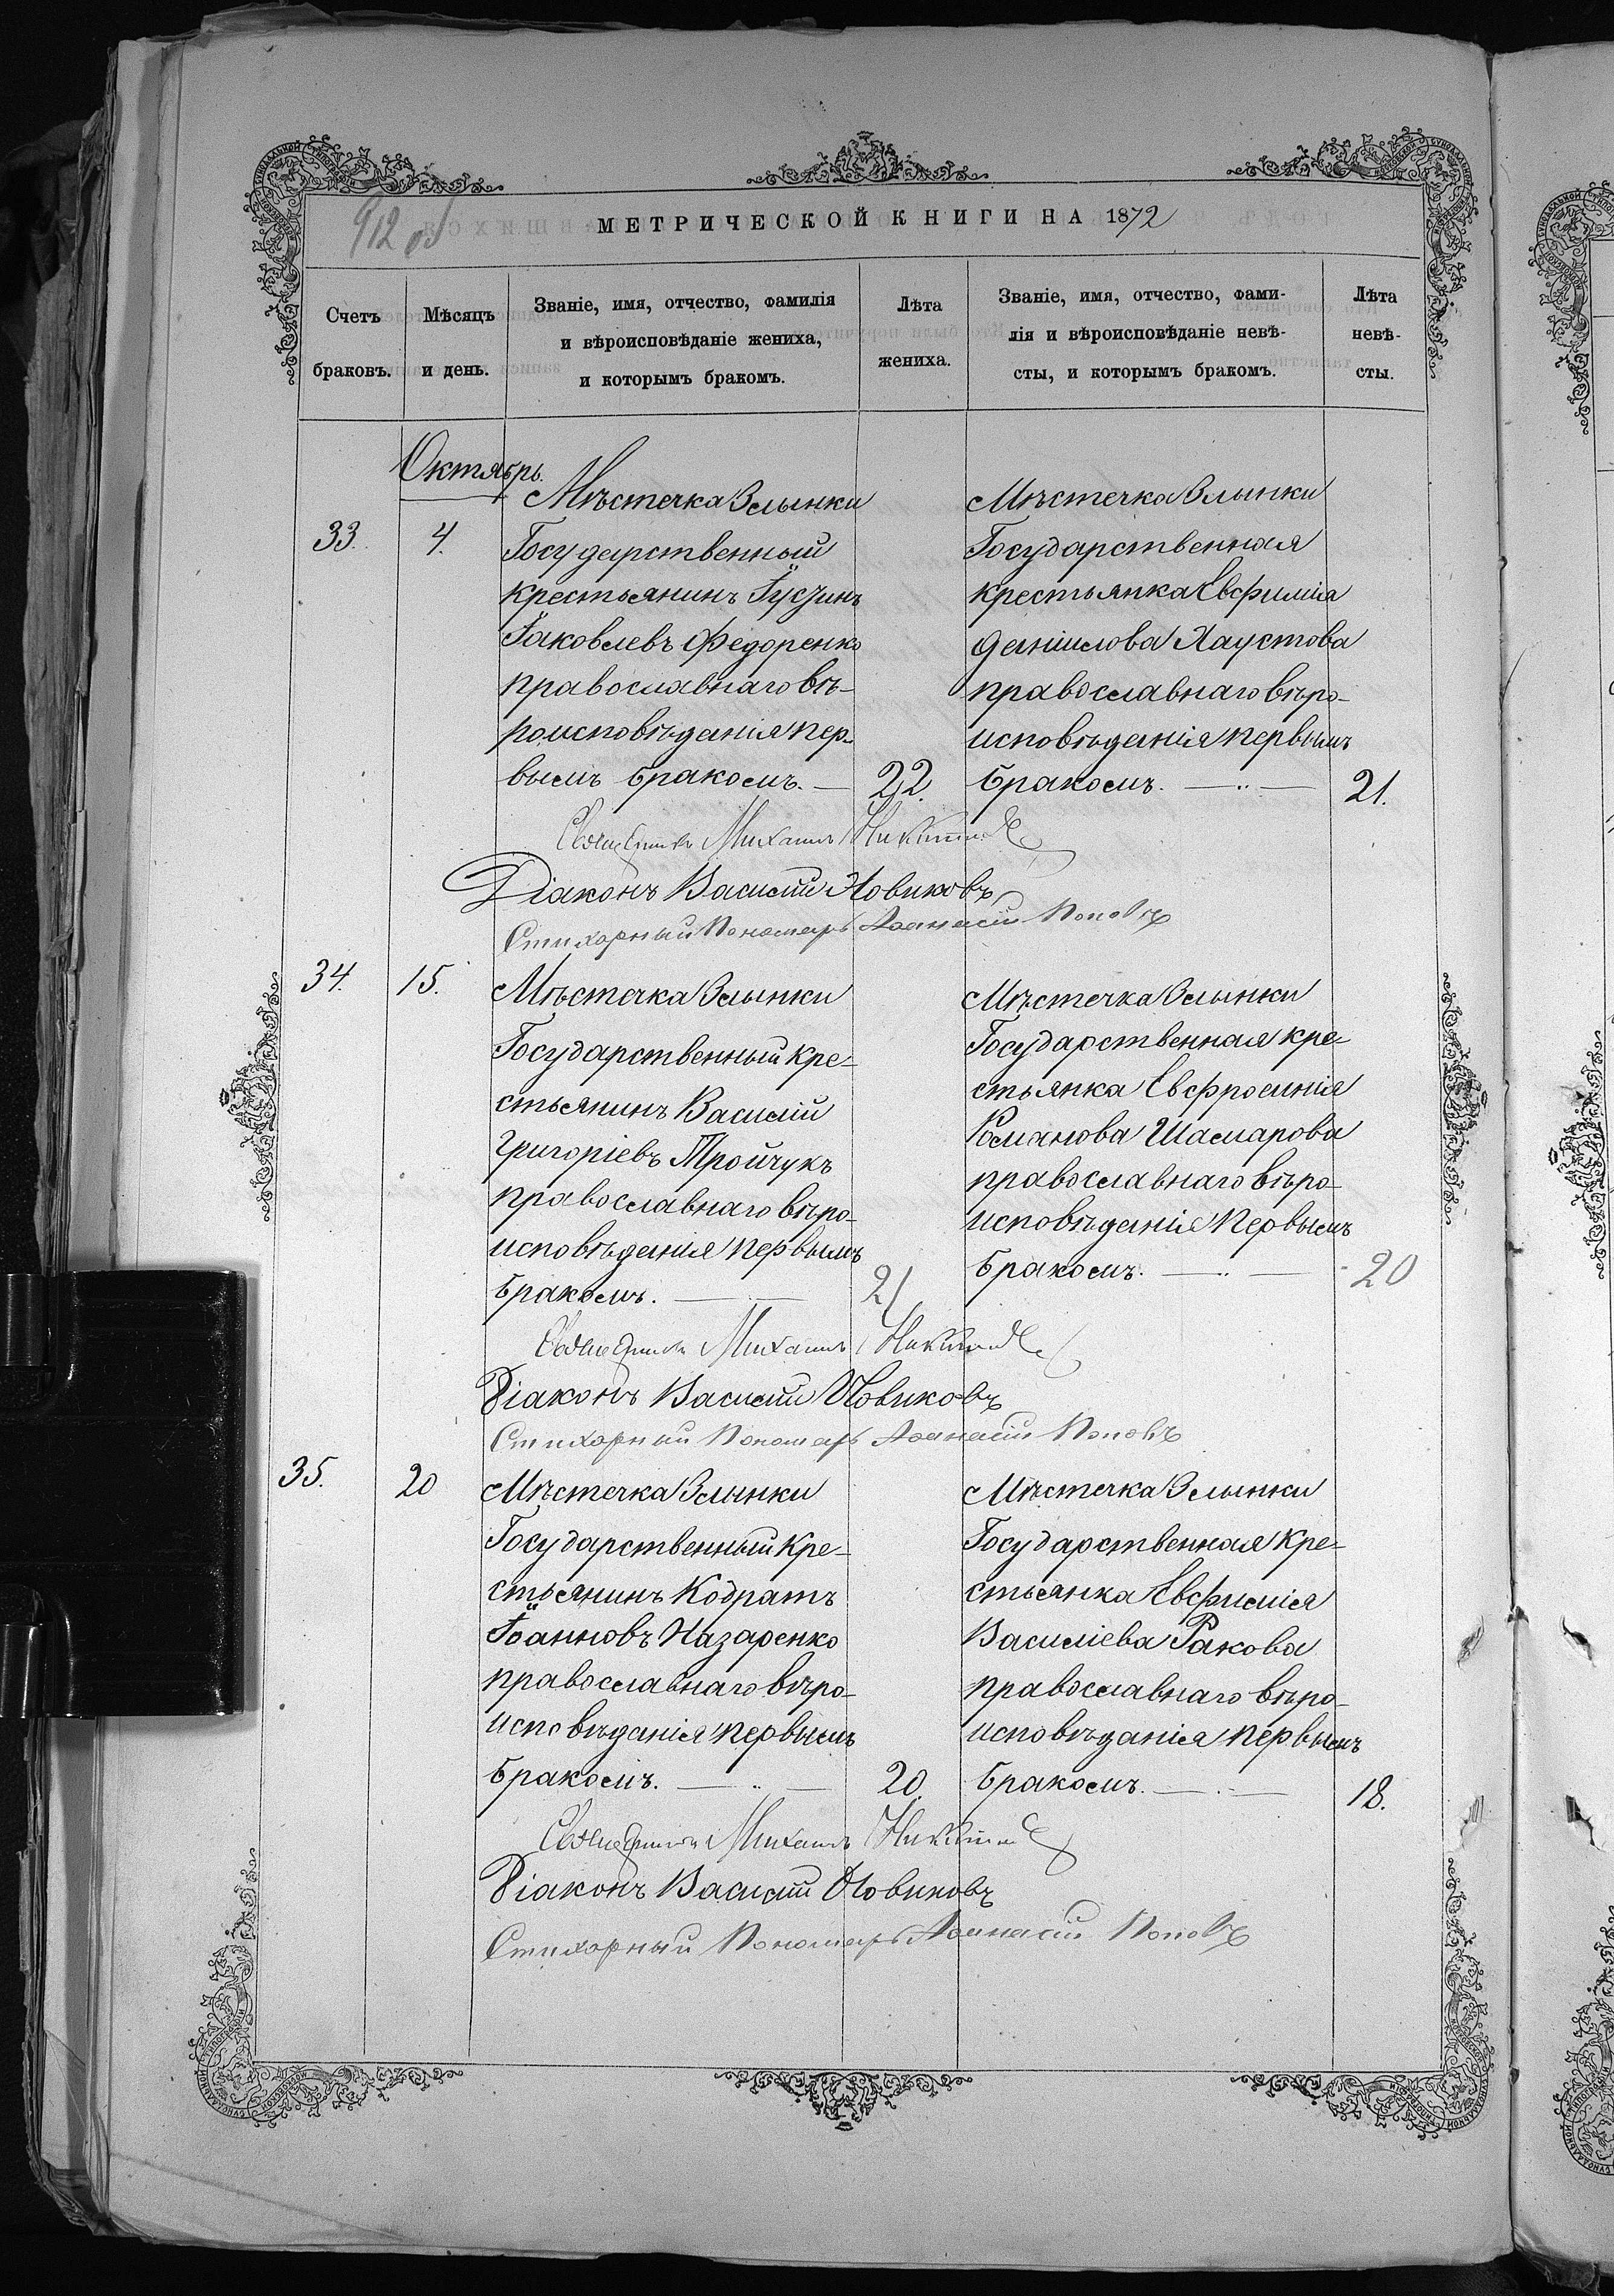 912 об
МЕТРИЧЕСКОЙ КНИГИ НА 1872
Счетъ браковъ.
Мѣсяцъ и день.
Званіе, имя, отчество, фамилія
и вѣроисповѣданіе жениха,
и которымъ бракомъ.
Лѣта жениха.
Званіе, имя, отчество, фами-
лія и вѣроисповѣданіе невѣ-
сты, и которымъ бракомъ.
Лѣта невѣ-
сты.
Октябрь.
33. 4.
Мѣстечка Злынки
Государственный
крестьянинъ Іустинъ
Іаковлевъ Федоренко
православнаго вѣ-
роисповѣданія пер-
вымъ бракомъ. — 22.
Мѣстечка Злынки
Государственная
крестьянка Евфимія
Даніилова Хаустова
православнаго вѣро-
исповѣданія первымъ
бракомъ. — „ — 21.
Священникъ Михаилъ
Діаконъ Василій Новиковъ
Стихарный Пономарь Аѳанасій Поповъ
34. 15.
Мѣстечка Злынки
Государственный кре-
стьянинъ Василій
Григоріевъ Тройчукъ
православнаго вѣро-
исповѣданія первымъ
бракомъ. — 21
Мѣстечка Злынки
Государственная кре-
стьянка Евфросинія
Романова Шамарова
православнаго вѣро-
исповѣданія первымъ
бракомъ. — „ — 20
Священникъ Михаилъ
Діаконъ Василій Новиковъ
Стихарный Пономарь Аѳанасій Поповъ
35. 20
Мѣстечка Злынки
Государственный кре-
стьянинъ Кодратъ
Іоанновъ Назаренко
православнаго вѣро-
исповѣданія первымъ
бракомъ. — „ — 20.
Мѣстечка Злынки
Государственная кре-
стьянка Евфимія
Василіева Ракова
православнаго вѣро-
исповѣданія первымъ
бракомъ. — „ — 18.
Священникъ Михаилъ
Діаконъ Василій Новиковъ
Стихарный Пономарь Аѳанасій Поповъ